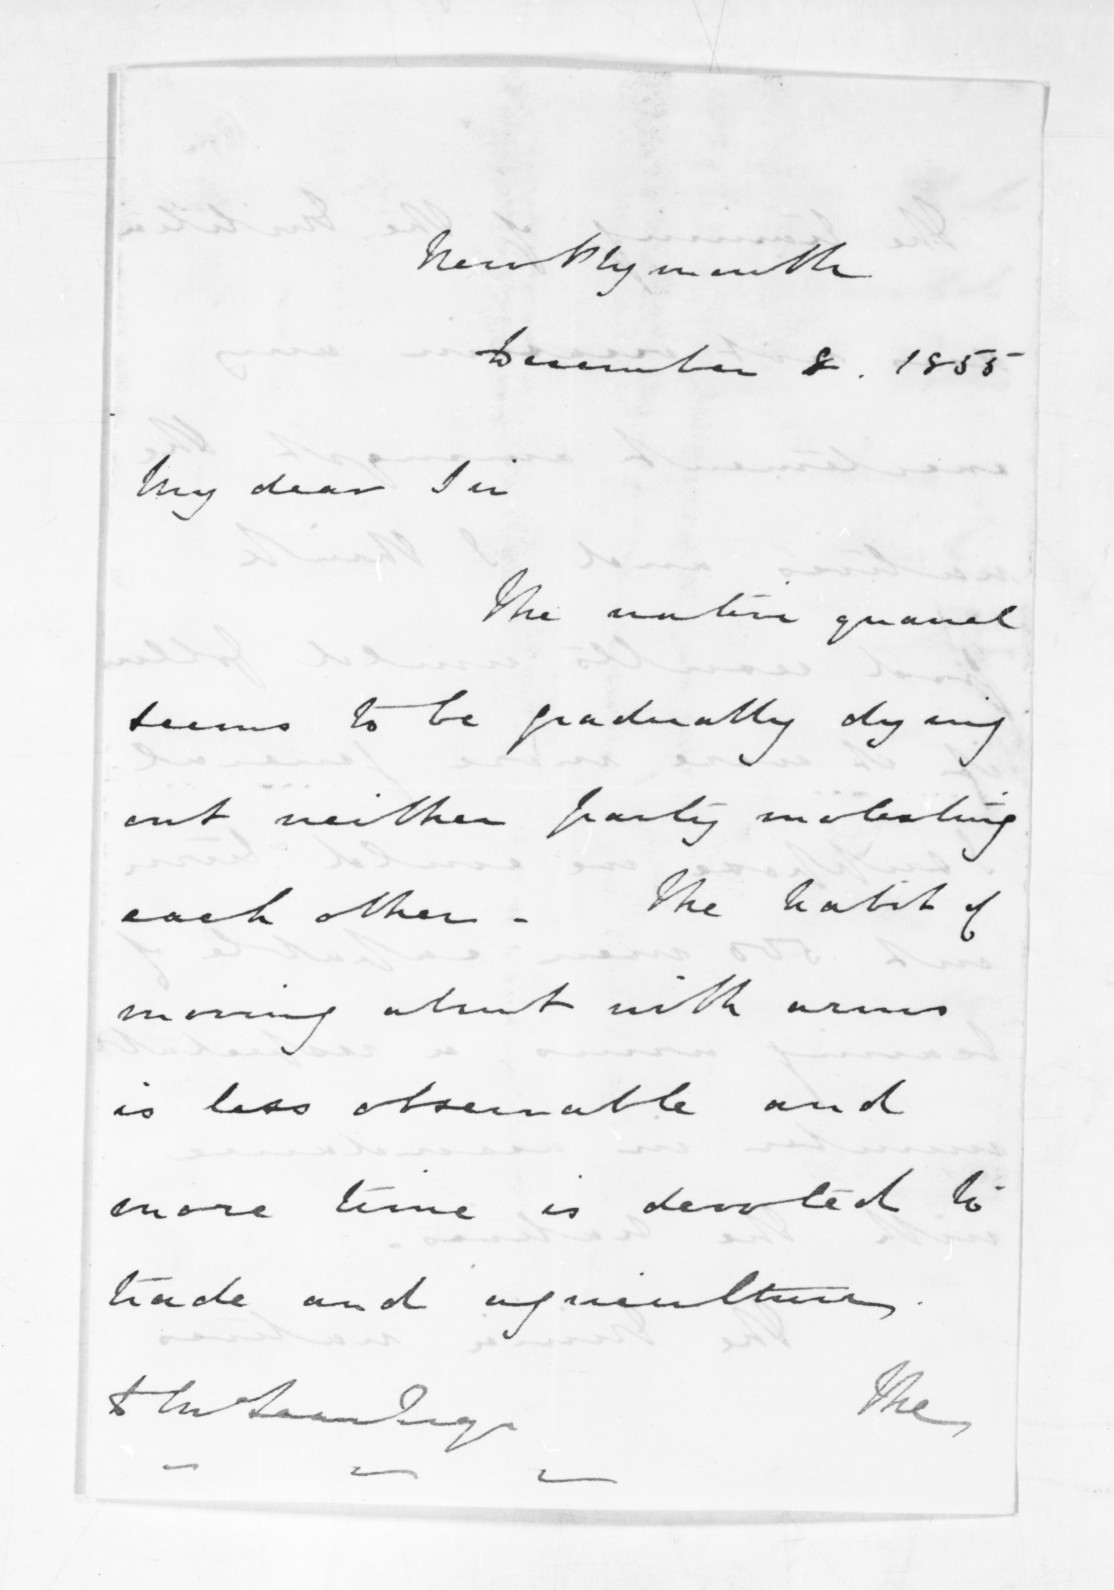 New Plymouth
December 8. 1855
My dear Sir
The native quarrel
seems to be gradually dying
out neither party molesting
each other - The habit of
moving about with arms
is less observable and
more time is devoted to
trade and agriculture.
D McLean Esqr The